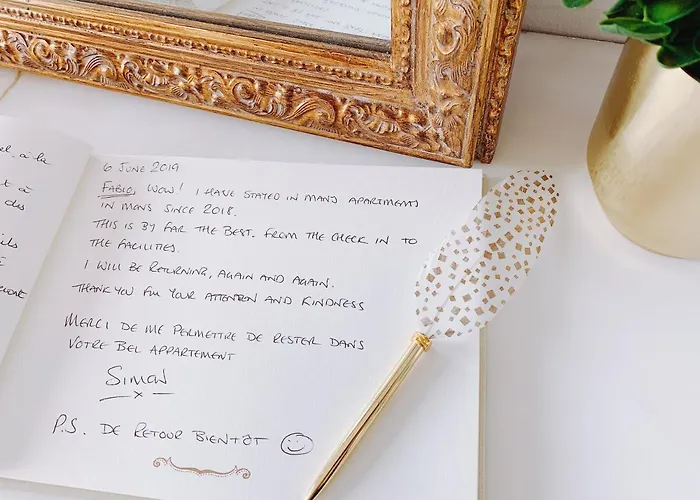 6 JUNE 2019
FABIO, WOW! I HAVE STAYED IN MANY APARTMENTS
IN MONS SINCE 2018.
THIS IS BY FAR THE BEST. FROM THE CHECK IN TO
THE FACILITIES.
I WILL BE RETURNING, AGAIN AND AGAIN.
THANK YOU FOR YOUR ATTENTION AND KINDNESS
MERCI DE ME PERMETTRE DE RESTER DANS
VOTRE BEL APPARTEMENT
SIMON
X
P.S. DE RETOUR BIENTÔT
à la
à
des